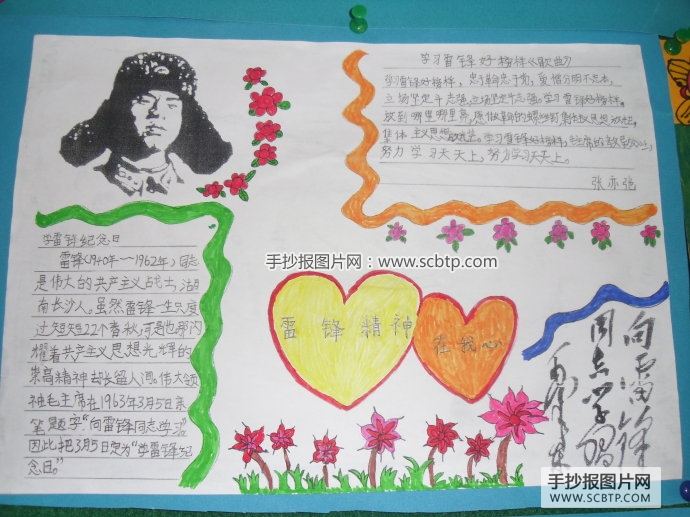 学习雷锋好榜样《歌曲》
学习雷锋好榜样，忠于革命忠于党，爱憎分明不忘本，
立场坚定斗志强，立场坚定斗志强。学习雷锋好榜样，
放到哪里哪里
集体主义思想
学习雷锋好榜样，
努力学习天天上，努力学习天天上。
张亦弛
学雷锋纪念日
雷锋(1940年——1962年)同志
是伟大的共产主义战士，湖
南长沙人。虽然雷锋一生只度
过短短22个春秋，可是他那闪
耀着共产主义思想光辉的
崇高精神却长留人间。伟大领
袖毛主席在1963年3月5日亲
笔题字“向雷锋同志学习”
因此把3月5日定为“学雷锋纪
念日。”
手抄报图片网：www.scbtp.com
雷锋精神
在我心
向雷锋
同志学习
毛泽东
手抄报图片网
WWW.SCBTP.COM